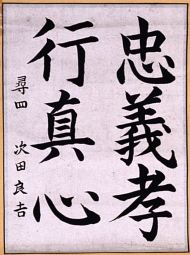 忠義孝
行真心
尋四 次田良吉